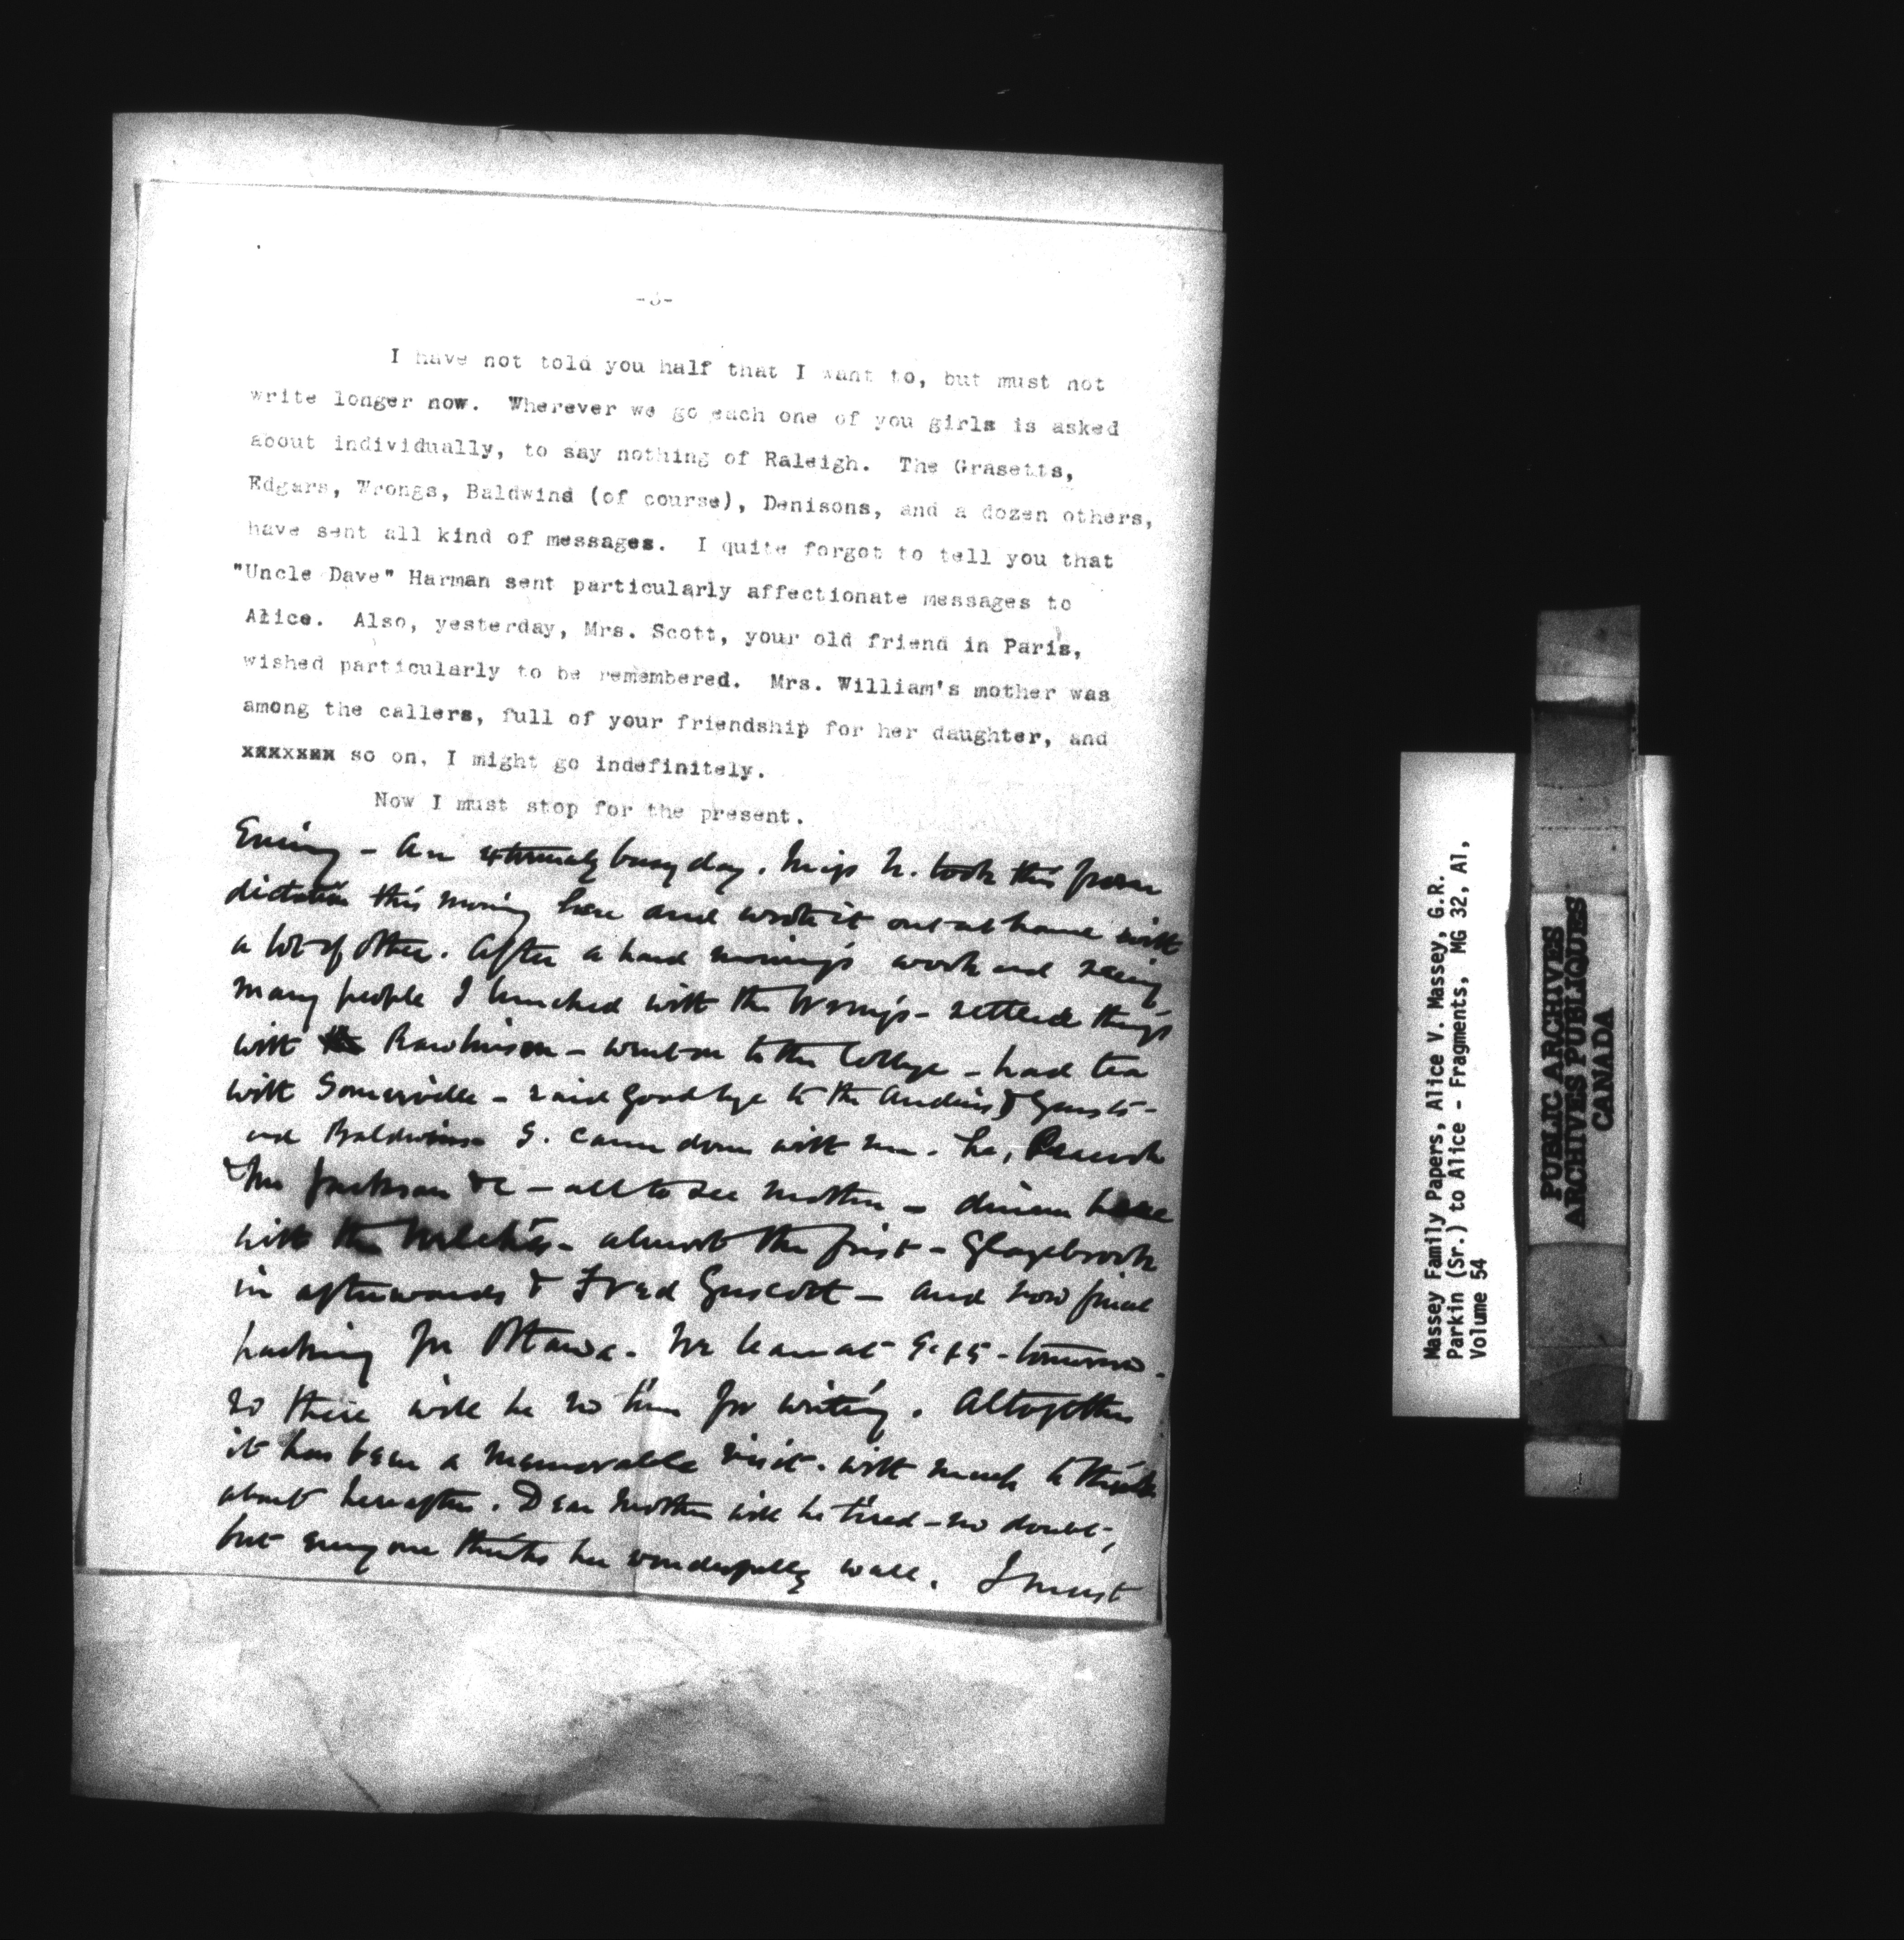 -3-
I have not told you half that I want to, but must not
write longer now. Wherever we go each one of you girls is asked
about individually, to say nothing of Raleigh. The Grasetts,
Edgars, Wrongs, Baldwins (of course), Denisons, and a dozen others,
have sent all kind of messages. I quite forgot to tell you that
"Uncle Dave" Harman sent particularly affectionate messages to
Alice. Also, yesterday, Mrs. Scott, your old friend in Paris,
wished particularly to be remembered. Mrs. William's mother was
among the callers, full of your friendship for her daughter, and
xxxxxxx so on, I might go indefinitely.
Now I must stop for the present.
Evening - An extremely busy day. Miss N. took this from
dictation this morning here and wrote it out at home with
a lot of other. After a hard morning's work and seeing
many people I lunched with the Wrongs - settled things
with Rawlinson - went on to the College - had tea
with Somerville - said goodbye to the &
and Baldwins G. came down with me. he, Peacock
& Mrs Jackson &c - all to see mother - dinner here
with the - almost the first - Glazebrook
in afterwards & Fred - and now final
packing for Ottawa. We leave at 9.15 - tomorrow.
so there will be no time for writing. Altogether
it has been a memorable visit. with much to think
about hereafter. Dear Mother will be tired - no doubt,
but everyone thinks her wonderfully well. I must
Massey Family Papers, Alice V. Massey, G.R.
Parkin (Sr.) to Alice - Fragments, MG 32, A1,
Volume 54
PUBLIC ARCHIVES
ARCHIVES PUBLIQUES
CANADA